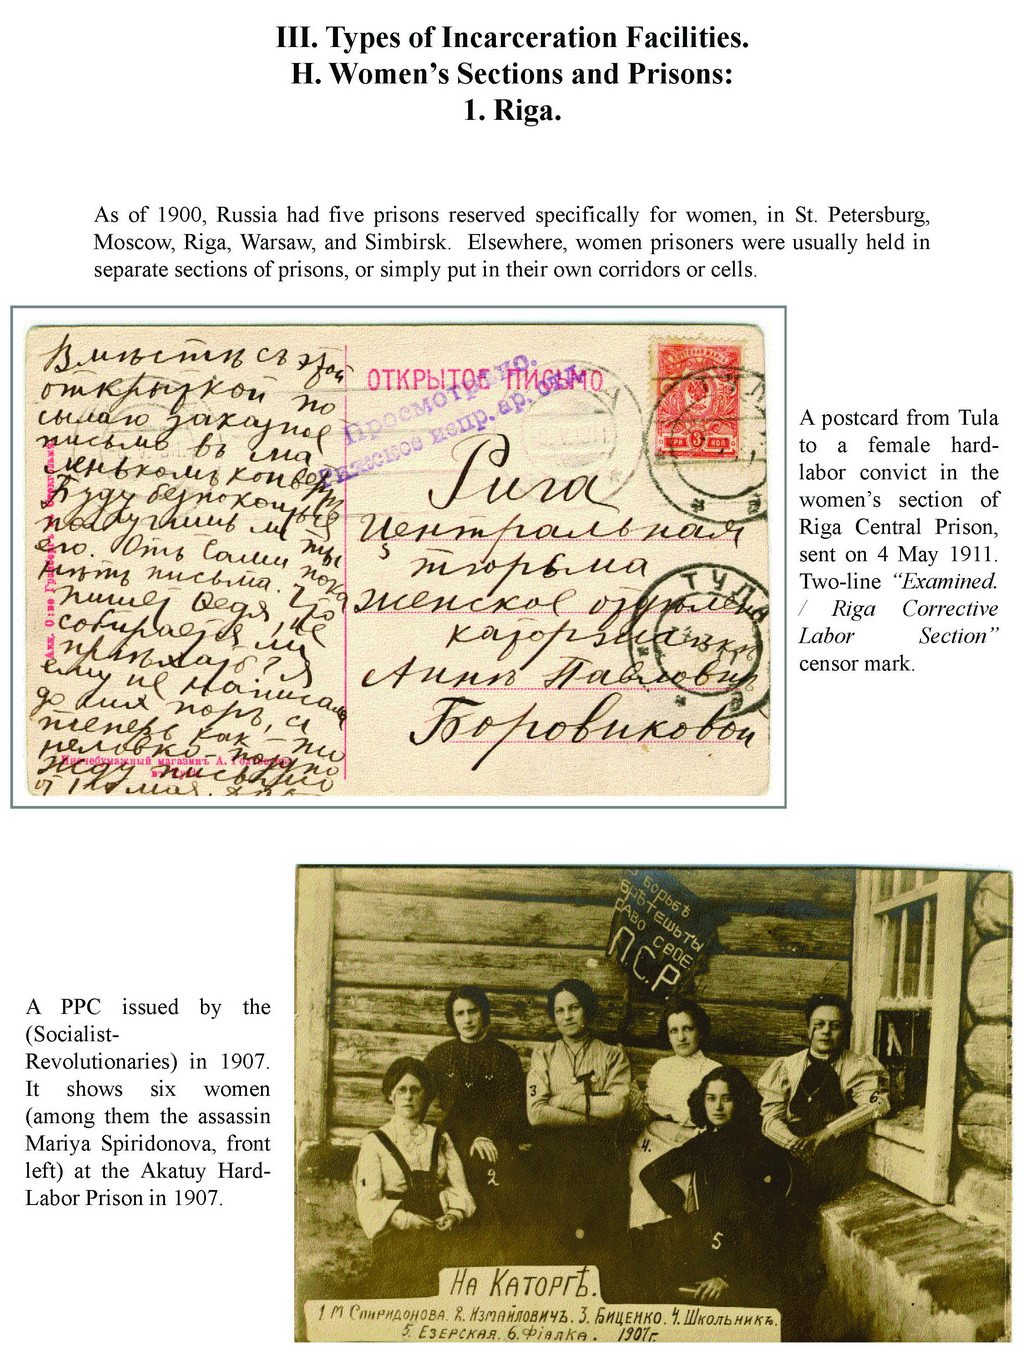 III. Types of Incarceration Facilities.
H. Women's Sections and Prisons:
1. Riga.
As of 1900, Russia had five prisons reserved specifically for women, in St. Petersburg,
Moscow, Riga, Warsaw, and Simbirsk. Elsewhere, women prisoners were usually held in
separate sections of prisons, or simply put in their own corridors or cells.
Вмѣстѣ съ этой
открыткой по
сылаю заказное
письмо въ ма
леньком конвер
Буду безпокоиться
получишь ли ты
его. Отъ Саши
нѣтъ письма.
пишет Федя, что
собирается ли
пріѣхать? Я
ему не написала
до сих поръ, а
теперь как-то
неловко
ОТКРЫТОЕ ПИСЬМО
Просмотрѣно.
Рижское испр. ар. отд.
ТРИ 3 КОП
Рига
Центральная
тюрьма
Женское отдѣлен
каторжанкѣ
Аннѣ Павловнѣ
Боровиковой
ТУЛА
A postcard from Tula
to a female hard-
labor convict in the
women's section of
Riga Central Prison,
sent on 4 May 1911.
Two-line "Examined.
/ Riga Corrective
Labor Section"
censor mark.
A PPC issued by the
(Socialist-
Revolutionaries) in 1907.
It shows six women
(among them the assassin
Mariya Spiridonova, front
left) at the Akatuy Hard-
Labor Prison in 1907.
Борьбѣ
брѣтешь ты
раво свое
П.С.Р
1
2
3
4.
5
6.
На Каторгѣ.
1. М. Спиридонова. 2. Измайловичъ. 3. Биценко. 4. Школьникъ.
5. Езерская. 6. Фіалка. 1907г.